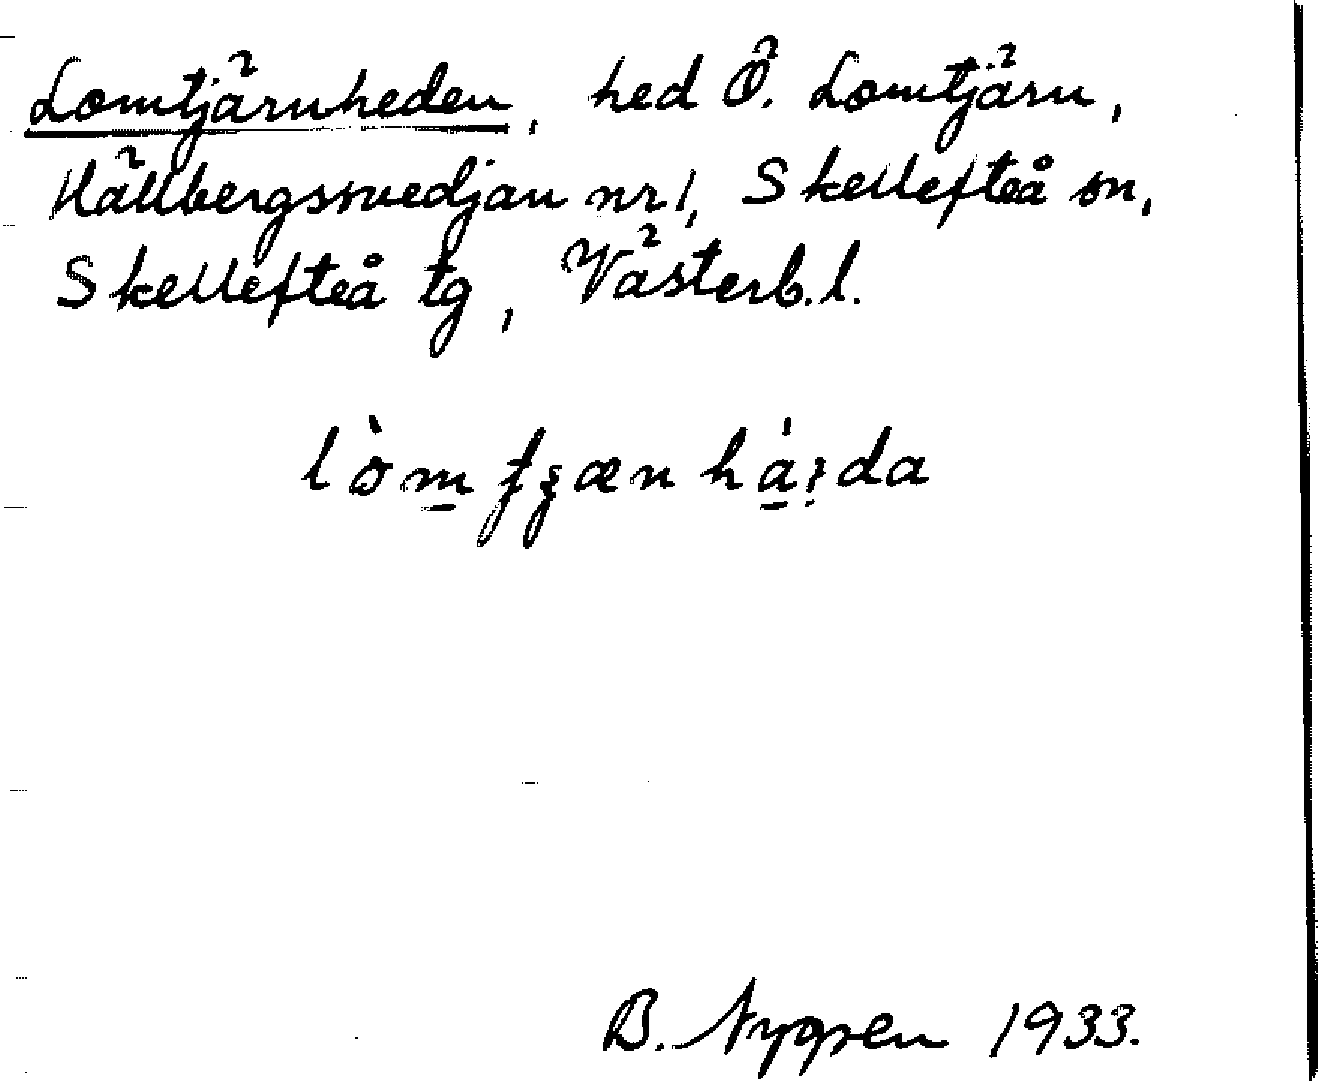 Lomtjärnheden, hed Ö. Lomtjärn,
Hällbergssvedjan nr 1, Skellefteå sn,
Skellefteå tg, Västerb. l.
B. Nygren 1933.